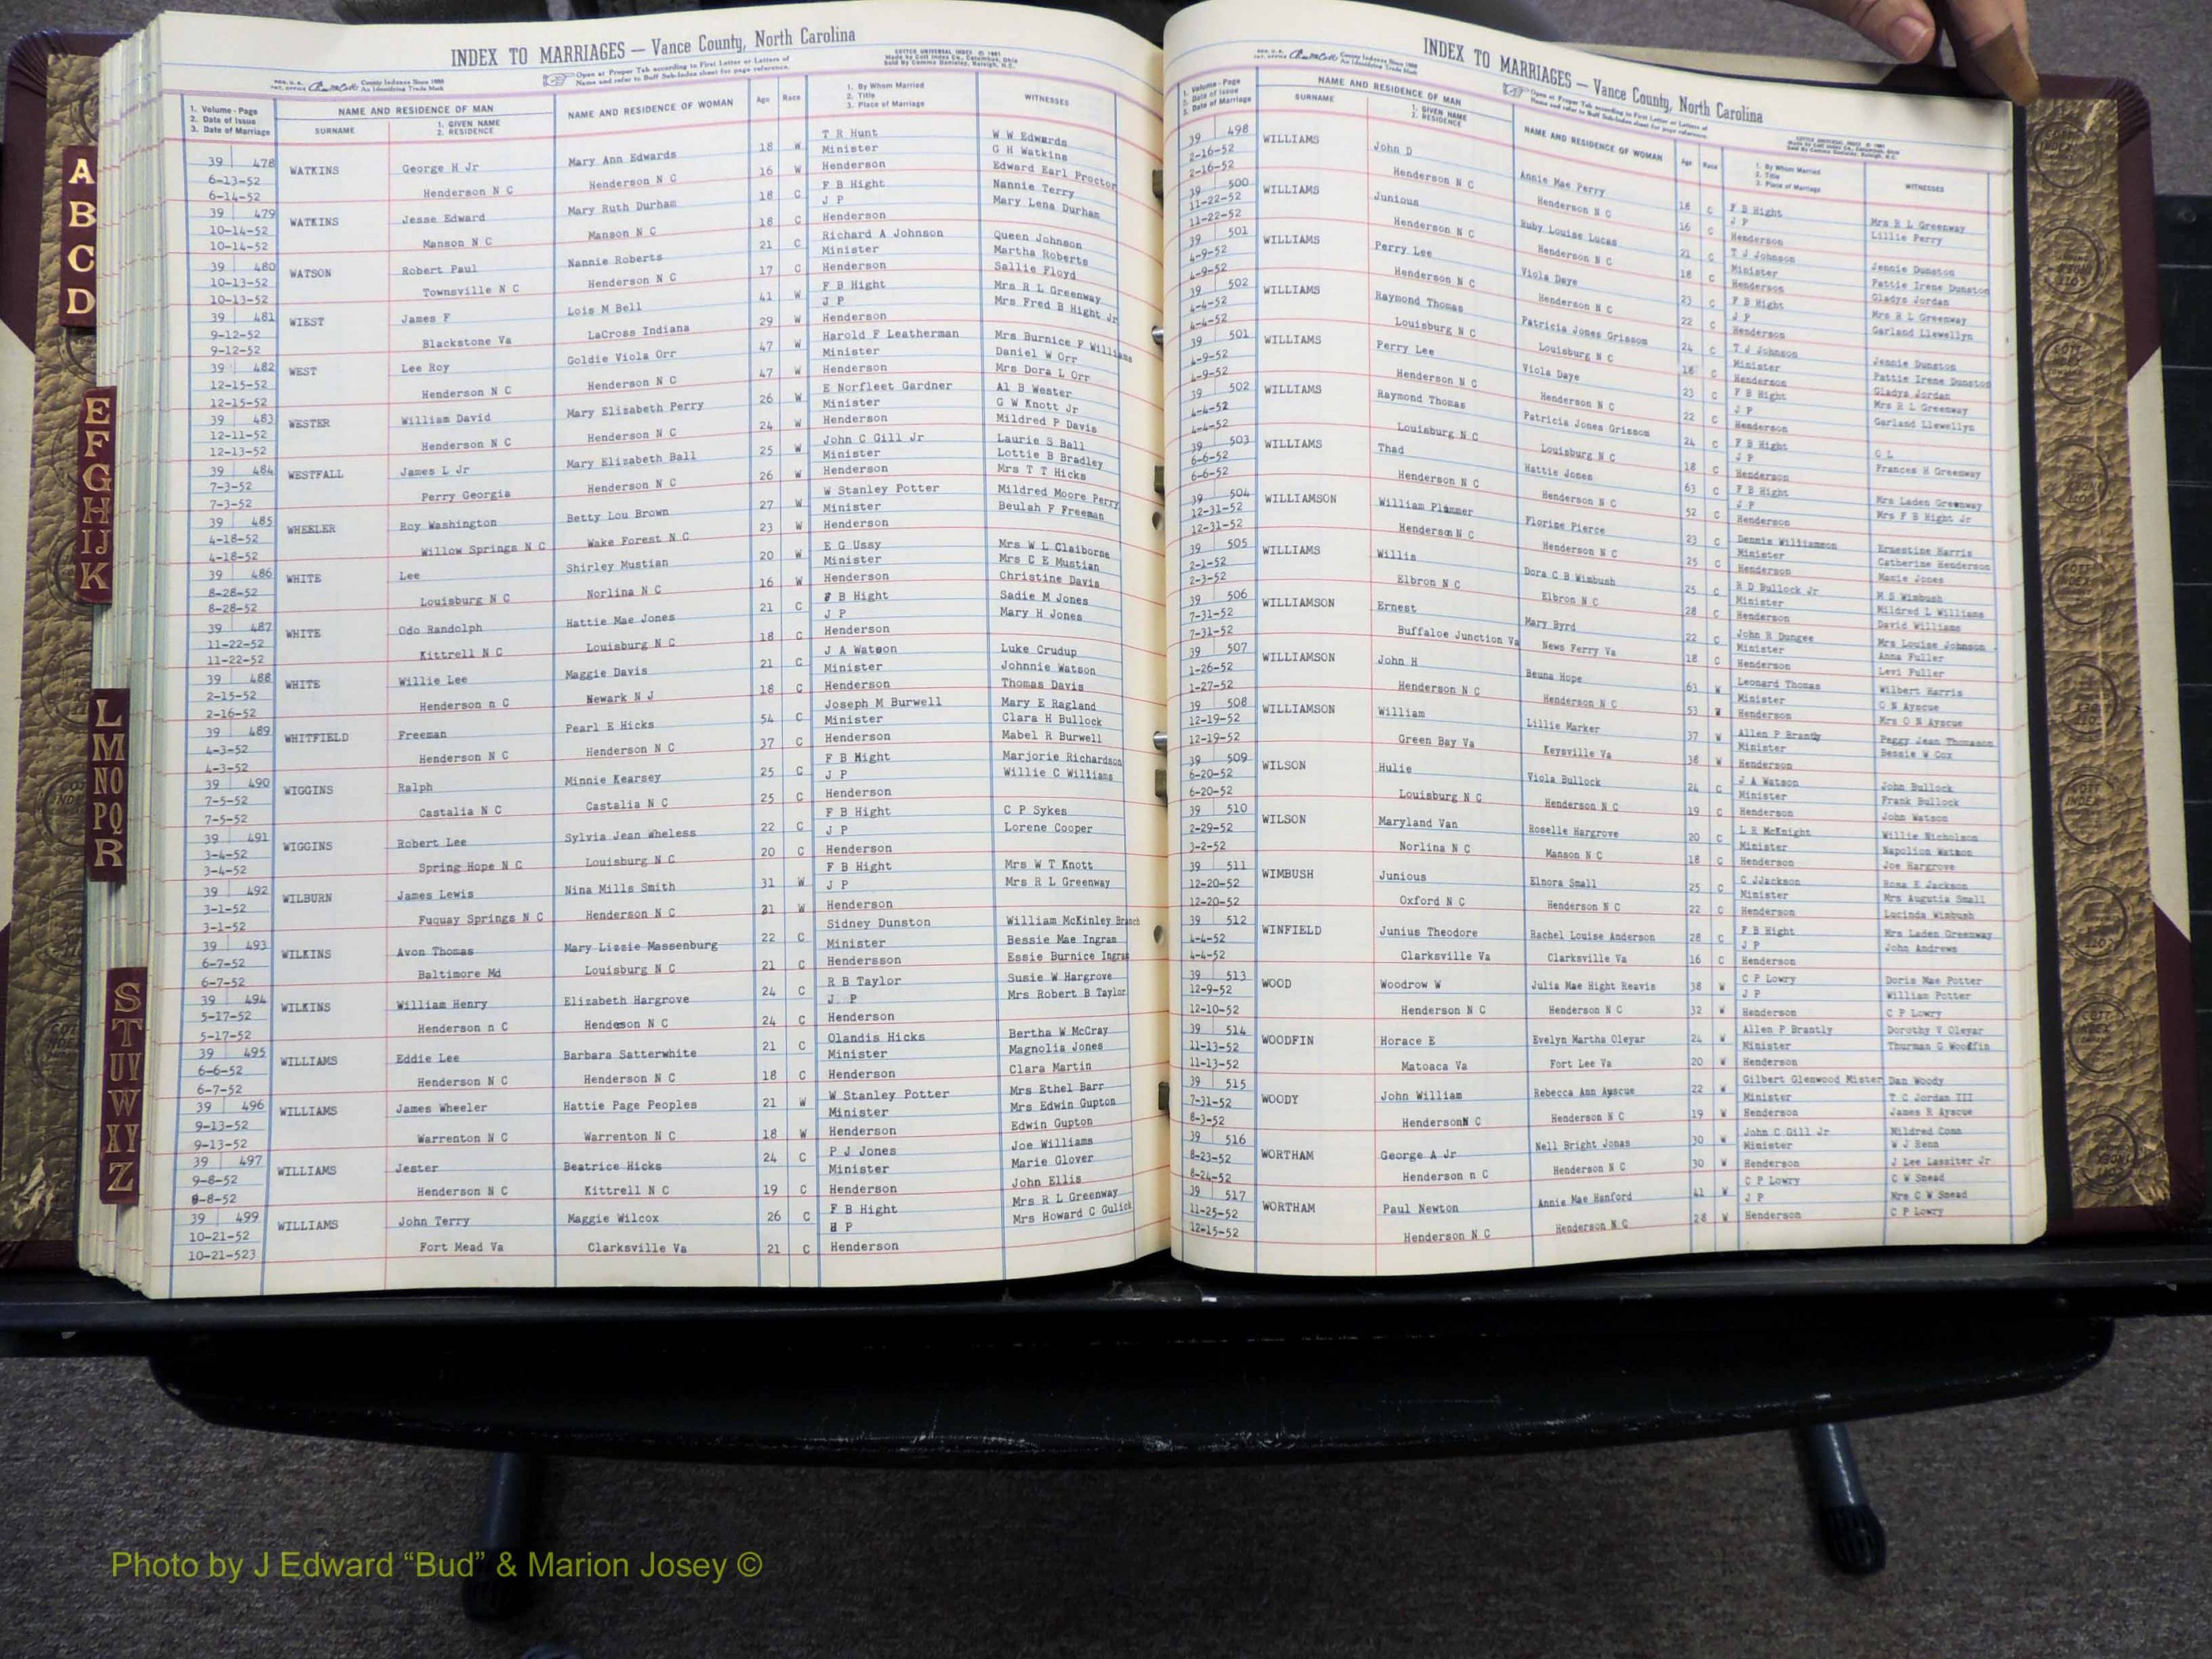 INDEX TO MARRIAGES — Vance County, North Carolina
Open at Proper Tab according to First Letter or Letters of
Name and refer to Buff Sub-Index sheet for page reference.
COTT UNIVERSAL INDEX
1. Volume - Page
2. Date of Issue
3. Date of Marriage
NAME AND RESIDENCE OF MAN
SURNAME
1. GIVEN NAME
2. RESIDENCE
NAME AND RESIDENCE OF WOMAN
Age Race
1. By Whom Married
2. Title
3. Place of Marriage
WITNESSES
39 478 WATKINS George H Jr Mary Ann Edwards 18 W T R Hunt W W Edwards
6-13-52 Minister G H Watkins
6-14-52 Henderson N C Henderson N C 16 W Henderson Edward Earl Proctor
39 479 WATKINS Jesse Edward Mary Ruth Durham 18 C F B Hight Nannie Terry
10-14-52 J P Mary Lena Durham
10-14-52 Manson N C Manson N C 18 C Henderson
39 480 WATSON Robert Paul Nannie Roberts 21 C Richard A Johnson Queen Johnson
10-13-52 Minister Martha Roberts
10-13-52 Townsville N C Henderson N C 17 C Henderson Sallie Floyd
39 481 WIEST James F Lois M Bell 41 W F B Hight Mrs R L Greenway
9-12-52 J P Mrs Fred B Hight Jr
9-12-52 Blackstone Va LaCross Indiana 29 W Henderson
39 482 WEST Lee Roy Goldie Viola Orr 47 W Harold F Leatherman Mrs Burnice F Williams
12-15-52 Minister Daniel W Orr
12-15-52 Henderson N C Henderson N C 47 W Henderson Mrs Dora L Orr
39 483 WESTER William David Mary Elizabeth Perry 26 W E Norfleet Gardner Al B Wester
12-11-52 Minister G W Knott Jr
12-13-52 Henderson N C Henderson N C 24 W Henderson Mildred P Davis
39 484 WESTFALL James L Jr Mary Elizabeth Ball 25 W John C Gill Jr Laurie S Ball
7-3-52 Minister Lottie B Bradley
7-3-52 Perry Georgia Henderson N C 26 W Henderson Mrs T T Hicks
39 485 WHEELER Roy Washington Betty Lou Brown 27 W W Stanley Potter Mildred Moore Perry
4-18-52 Minister Beulah F Freeman
4-18-52 Willow Springs N C Wake Forest N C 23 W Henderson
39 486 WHITE Lee Shirley Mustian 20 W E G Ussy Mrs W L Claiborne
8-28-52 Minister Mrs C E Mustian
8-28-52 Louisburg N C Norlina N C 16 W Henderson Christine Davis
39 487 WHITE Odo Randolph Hattie Mae Jones 21 C F B Hight Sadie M Jones
11-22-52 J P Mary H Jones
11-22-52 Kittrell N C Louisburg N C 18 C Henderson
39 488 WHITE Willie Lee Maggie Davis 21 C J A Watson Luke Crudup
2-15-52 Minister Johnnie Watson
2-16-52 Henderson n C Newark N J 18 C Henderson Thomas Davis
39 489 WHITFIELD Freeman Pearl E Hicks 54 C Joseph M Burwell Mary E Ragland
4-3-52 Minister Clara H Bullock
4-3-52 Henderson N C Henderson N C 37 C Henderson Mabel R Burwell
39 490 WIGGINS Ralph Minnie Kearsey 25 C F B Hight Marjorie Richardson
7-5-52 J P Willie C Williams
7-5-52 Castalia N C Castalia N C 25 C Henderson
39 491 WIGGINS Robert Lee Sylvia Jean Wheless 22 C F B Hight C P Sykes
3-4-52 J P Lorene Cooper
3-4-52 Spring Hope N C Louisburg N C 20 C Henderson
39 492 WILBURN James Lewis Nina Mills Smith 31 W F B Hight Mrs W T Knott
3-1-52 J P Mrs R L Greenway
3-1-52 Fuquay Springs N C Henderson N C 21 W Henderson
39 493 WILKINS Avon Thomas Mary Lizzie Massenburg 22 C Sidney Dunston William McKinley Branch
6-7-52 Minister Bessie Mae Ingram
6-7-52 Baltimore Md Louisburg N C 21 C Hendersson Essie Burnice Ingram
39 494 WILKINS William Henry Elizabeth Hargrove 24 C R B Taylor Susie W Hargrove
5-17-52 J P Mrs Robert B Taylor
5-17-52 Henderson n C Hendeson N C 24 C Henderson
39 495 WILLIAMS Eddie Lee Barbara Satterwhite 21 C Olandis Hicks Bertha W McCray
6-6-52 Minister Magnolia Jones
6-7-52 Henderson N C Henderson N C 18 C Henderson Clara Martin
39 496 WILLIAMS James Wheeler Hattie Page Peoples 21 W W Stanley Potter Mrs Ethel Barr
9-13-52 Minister Mrs Edwin Gupton
9-13-52 Warrenton N C Warrenton N C 18 W Henderson Edwin Gupton
39 497 WILLIAMS Jester Beatrice Hicks 24 C P J Jones Joe Williams
9-8-52 Minister Marie Glover
8-8-52 Henderson N C Kittrell N C 19 C Henderson John Ellis
39 499 WILLIAMS John Terry Maggie Wilcox 26 C F B Hight Mrs R L Greenway
10-21-52 P Mrs Howard C Gulick
10-21-523 Fort Mead Va Clarksville Va 21 C Henderson
INDEX TO MARRIAGES — Vance County, North Carolina
Open at Proper Tab according to First Letter or Letters of
Name and refer to Buff Sub-Index sheet for page reference.
1. Volume - Page
2. Date of Issue
3. Date of Marriage
NAME AND RESIDENCE OF MAN
SURNAME
1. GIVEN NAME
2. RESIDENCE
NAME AND RESIDENCE OF WOMAN
Age Race
1. By Whom Married
2. Title
3. Place of Marriage
WITNESSES
39 498 WILLIAMS John D Annie Mae Perry 18 C F B Hight Mrs R L Greenway
2-16-52 J P Lillie Perry
2-16-52 Henderson N C Henderson N C 16 C Henderson
39 500 WILLIAMS Junious Ruby Louise Lucas 21 C T J Johnson Jennie Dunston
11-22-52 Minister Pattie Irene Dunston
11-22-52 Henderson N C Henderson N C 18 C Henderson Gladys Jordan
39 501 WILLIAMS Perry Lee Viola Daye 23 C F B Hight Mrs R L Greenway
4-9-52 J P Garland Llewellyn
4-9-52 Henderson N C Henderson N C 22 C Henderson
39 502 WILLIAMS Raymond Thomas Patricia Jones Grissom 24 C T J Johnson Jennie Dunston
4-4-52 Minister Pattie Irene Dunston
4-4-52 Louisburg N C Louisburg N C 18 C Henderson Gladys Jordan
39 501 WILLIAMS Perry Lee Viola Daye 23 C F B Hight Mrs R L Greenway
4-9-52 J P Garland Llewellyn
4-9-52 Henderson N C Henderson N C 22 C Henderson
39 502 WILLIAMS Raymond Thomas Patricia Jones Grissom 24 C F B Hight O L
4-4-52 J P Frances H Greenway
4-4-52 Louisburg N C Louisburg N C 18 C Henderson
39 503 WILLIAMS Thad Hattie Jones 63 C F B Hight Mrs Laden Greenway
6-6-52 J P Mrs F B Hight Jr
6-6-52 Henderson N C Henderson N C 52 C Henderson
39 504 WILLIAMSON William Plummer Florine Pierce 23 C Dennis Williamson Ernestine Harris
12-31-52 Minister Catherine Henderson
12-31-52 Henderson N C Henderson N C 25 C Henderson Mamie Jones
39 505 WILLIAMS Willis Dora C B Wimbush 25 C R D Bullock Jr M S Wimbush
2-1-52 Minister Mildred L Williams
2-3-52 Elbron N C Elbron N C 28 C Henderson David Williams
39 506 WILLIAMSON Ernest Mary Byrd 22 C John R Dungee Mrs Louise Johnson
7-31-52 Minister Anna Fuller
7-31-52 Buffaloe Junction Va News Ferry Va 18 C Henderson Levi Fuller
39 507 WILLIAMSON John H Beuna Hope 63 W Leonard Thomas Wilbert Harris
1-26-52 Minister O N Ayscue
1-27-52 Henderson N C Henderson N C 53 W Henderson Mrs O N Ayscue
39 508 WILLIAMSON William Lillie Marker 37 W Allen P Brantly Peggy Jean Thomason
12-19-52 Minister Bessie W Cox
12-19-52 Green Bay Va Keysville Va 38 W Henderson
39 509 WILSON Hulie Viola Bullock 24 C J A Watson John Bullock
6-20-52 Minister Frank Bullock
6-20-52 Louisburg N C Henderson N C 19 C Henderson John Watson
39 510 WILSON Maryland Van Roselle Hargrove 20 C L R McKnight Willie Nicholson
2-29-52 Minister Napolion Watson
3-2-52 Norlina N C Manson N C 18 C Henderson Joe Hargrove
39 511 WIMBUSH Junious Elnora Small 25 C C JJackson Rosa E Jackson
12-20-52 Minister Mrs Augutia Small
12-20-52 Oxford N C Henderson N C 22 C Henderson Lucinda Wimbush
39 512 WINFIELD Junius Theodore Rachel Louise Anderson 28 C F B Hight Mrs Laden Greenway
4-4-52 J P John Andrews
4-4-52 Clarksville Va Clarksville Va 16 C Henderson
39 513 WOOD Woodrow W Julia Mae Hight Reavis 38 W C P Lowry Doris Mae Potter
12-9-52 J P William Potter
12-10-52 Henderson N C Henderson N C 32 W Henderson C P Lowry
39 514 WOODFIN Horace E Evelyn Martha Oleyar 24 W Allen P Brantly Dorothy V Oleyar
11-13-52 Minister Thurman G Woodfin
11-13-52 Matoaca Va Fort Lee Va 20 W Henderson
39 515 WOODY John William Rebecca Ann Ayscue 22 W Gilbert Glenwood Mister Dan Woody
7-31-52 Minister T C Jordan III
8-3-52 HendersonN C Henderson N C 19 W Henderson James R Ayscue
39 516 WORTHAM George A Jr Nell Bright Jonas 30 W John C Gill Jr Mildred Conn
8-23-52 Minister W J Renn
8-24-52 Henderson n C Henderson N C 30 W Henderson J Lee Lassiter Jr
39 517 WORTHAM Paul Newton Annie Mae Hanford 41 W C P Lowry C W Snead
11-25-52 J P Mrs C W Snead
12-15-52 Henderson N C Henderson N C 28 W Henderson C P Lowry
A
B
C
D
E
F
G
H
IJ
K
L
M
NO
PQ
R
S
T
UV
W
XY
Z
Photo by J Edward “Bud” & Marion Josey ©